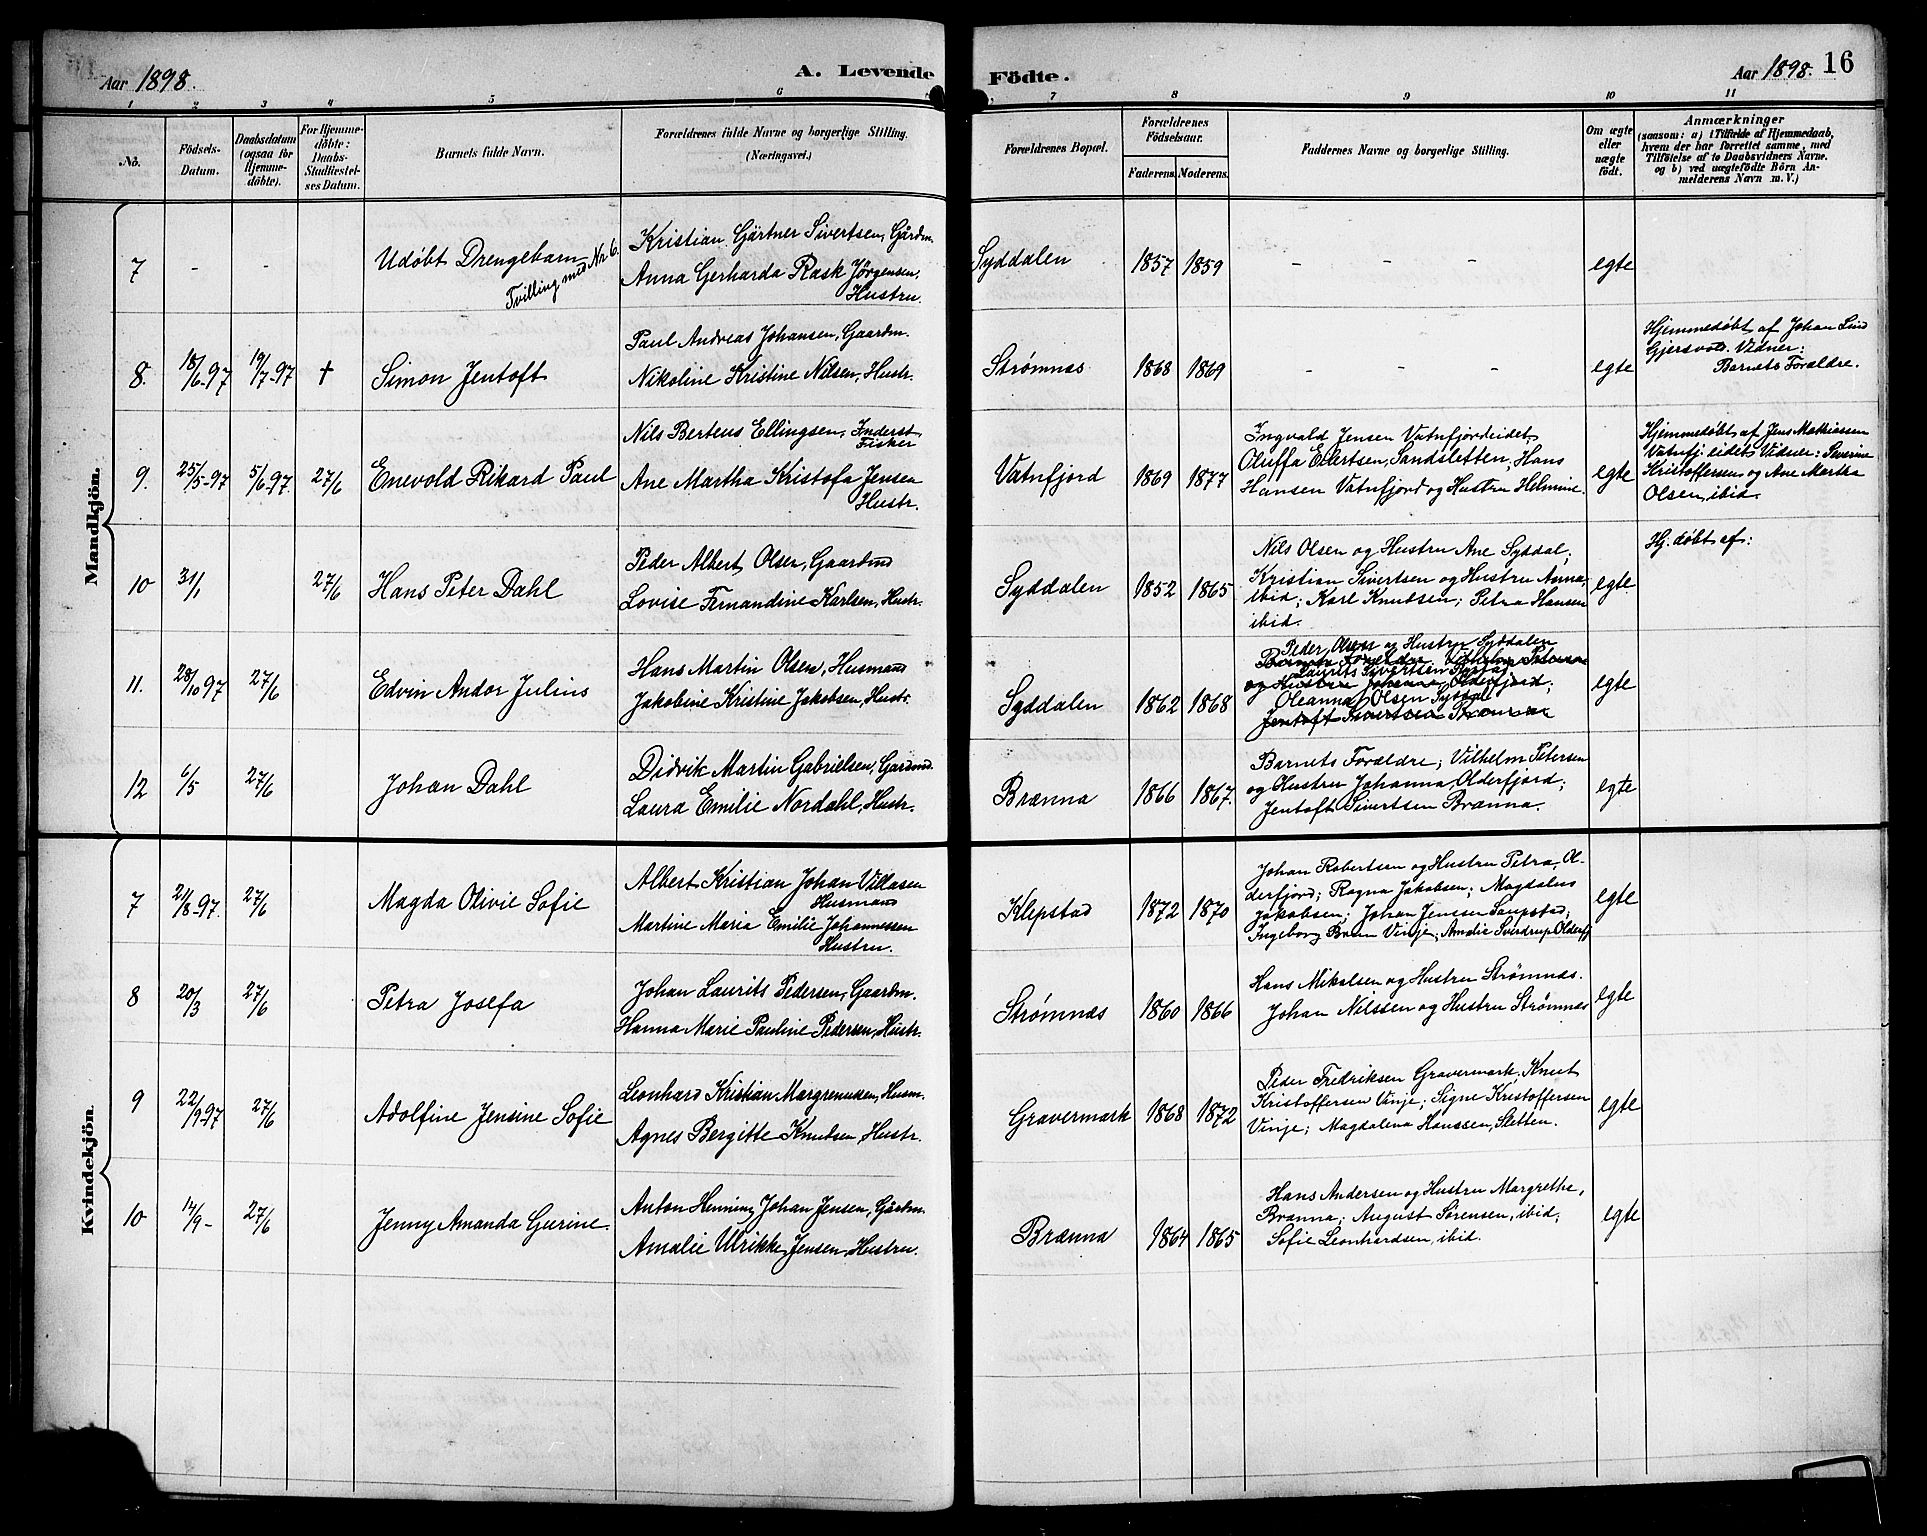 Aar 1898.
A. Levende Födte.
Aar 1898. 16
1 2 3 4 5 6 7 8 9 10 11
No.
Födsels-
Datum.
Daabsdatum
(ogsaa for
Hjemme-
döbte).
For Hjemme-
döbte:
Daabs-
Stadfæstel-
ses Datum.
Barnets fulde Navn.
Forældrenes fulde Navne og borgerlige Stilling.
(Næringsvei.)
Forældrenes Bopæl.
Forældrenes
Födselsaar.
Faderens. Moderens.
Faddernes Navne og borgerlige Stilling.
Om ægte
eller
uægte
födt.
Anmærkninger
(saasom: a) i Tilfælde af Hjemmedaab,
hvem der har forrettet samme, med
Tilföielse af to Daabsvidners Navne.
og b) ved uægtefödte Börn An-
melderens Navn m. V.)
Mandkjön.
7 - -
Udøbt Drengebarn
Tvilling med Nr 6.
Kristian Gärtner Sivertsen, Gårdm.
Anna Gerharda Rask Jørgensen,
Hustru.
Syddalen 1857 1859 - - - egte
8. 18/6-97 19/7-97 †
Simon Jentoft
Paul Andreas Johansen, Gaardm.
Nikoline Kristine Nilsen, Hustr.
Strømnæs 1868 1869 - - - egte
Hjemmedøbt af Johan Lind
Gjersvold. Vidner:
Barnets Forældre.
9. 25/5-97 5/6-97. 27/6
Enevold Rikard Paul
Nils Berteus Ellingsen, Inderst,
Fisker
Ane Martha Kristofa Jensen
Hustr.
Vatnfjord 1869 1877
Ingvald Jensen Vatnfjordeidet,
Oluffa Eilertsen, Sandsletten, Hans
Hansen Vatnfjord og Hustru Helmine.
egte
Hjemmedøbt af Jens Mathiassen
Vatnfj. eidet. Vidner: Severine
Kristoffersen og Ane Martha
Olsen, ibid.
10 31/1 27/6
Hans Peter Dahl
Peder Albert Olsen, Gaardmd
Lovise Fernandine Karlsen, Hustr.
Syddalen 1852 1865
Nils Olsen og Hustru Ane Syddal,
Kristian Sivertsen og Hustru Anna,
ibid; Karl Knutsen; Petra Hansen
ibid.
egte
Hj. døbt af:
11. 28/10 97 27/6
Edvin Andor Julius
Hans Martin Olsen, Husmand
Jakobine Kristine Jakobsen, Hustr.
Syddalen 1862 1868
Peder Olsen og Hustru Syddalen
Barnets Forældre, Vilhelm Petersen
Laurits Sivertsen
og Hustru Johanna, Olderfjord;
Oleanna Olsen Syddal
Jentoft Sivertsen Brænna
egte
12 6/5 27/6
Johan Dahl
Didvik Martin Gabrielsen, Gardmd.
Laura Emilie Nordahl, Hustr.
Brænna 1866 1867.
Barnets Forældre; Vilhelm Petersen
og Hustru Johanna, Olderfjord;
Jentoft Sivertsen Brænna.
egte
Kvindekjön.
7 21/8-97. 27/6
Magda Olivie Sofie
Albert Kristian Johan Villasen
Husmand
Martine Maria Emilie Johannessen
Hustru.
Klepstad 1872 1870
Johan Robertsen og Hustru Petra, Ol-
derfjord; Ragna Jakobsen; Magdalus
Jakobsen; Johan Jensen Saupstad;
Ingeborg Bram Vinje; Amalie Sverdrup, Olderfj
egte
8 20/3 27/6
Petra Josefa
Johan Laurits Pedersen, Gaardm.
Hanna Marie Pauline Pedersen, Hustr.
Strømnæs 1860 1866
Hans Mikalsen og Hustru Strømnæs.
Johan Nilssen og Hustru Strømnæs
egte
9 22/9-97 27/6
Adolfine Jensine Sofie
Leonhard Kristian, Husm.
Agnes Bergitte Knutsen, Hustr.
Gravermark 1868 1872
Peder Fredriksen Gravermark, Knut
Kristoffersen Vinje; Signe Kristoffersen
Vinje; Magdalena Hanssen, Sletten.
egte
10 14/9- 27/6
Jenny Amanda Gurine
Anton Henning Johan Jensen, Gårdm.
Amalie Ulrikke Jensen, Hustru.
Brænna 1864 1865
Hans Andersen og Hustru Margrethe,
Brænna; August Sørensen, ibid;
Sofie Leonhardsen, ibid.
egte